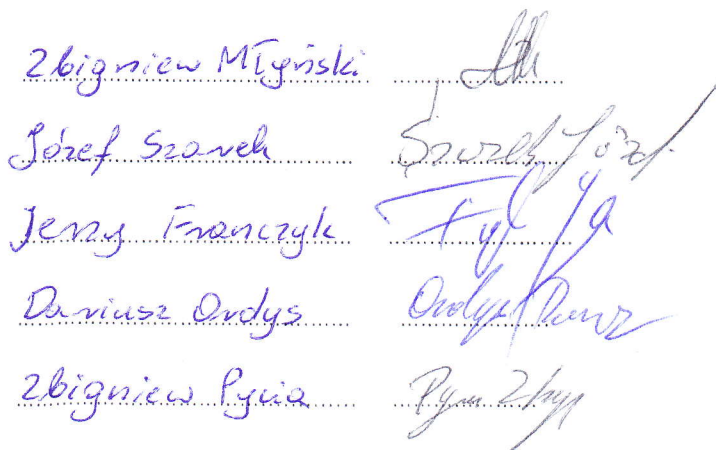 Zbigniew Młyński
Józef Szarek Szarek Józef
Jerzy Franczyk
Dariusz Ordys Ordys Dariusz
Zbigniew Pycia Pycia Zbig